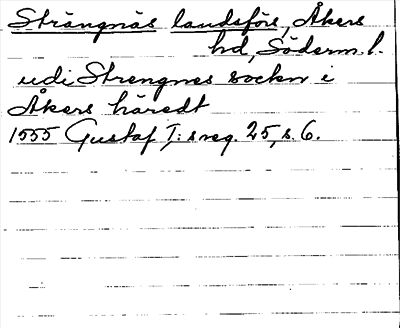 Strängnäs landsförs, Åkers
hd, Söderm. l.
udi Strengnes sockn i
Åkers häredt
1555 Gustaf I:s reg. 25, s. 6.